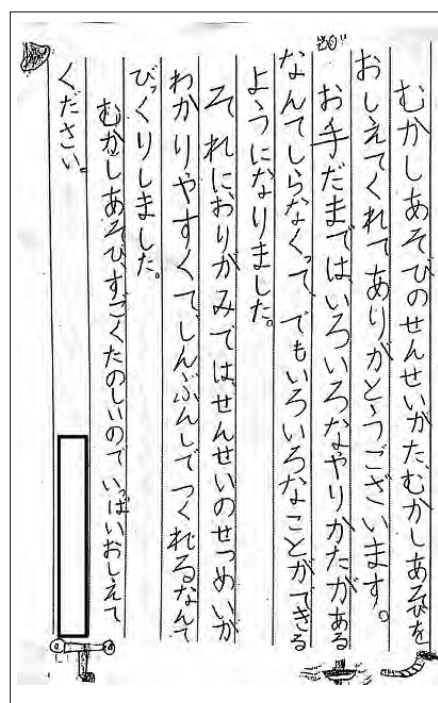 むかしあそびのせんせいがた、むかしあそびを
おしえてくれてありがとうございます。
お手だまでは、いろいろなやりかたがある
なんてしらなくって、でもいろいろなことができる
ようになりました。
それにおりがみではせんせいのせつめいが
わかりやすくて、しんぶんしでつくれるなんて
びっくりしました。
むかしあそび、すごくたのしいので いっぱいおしえて
ください。